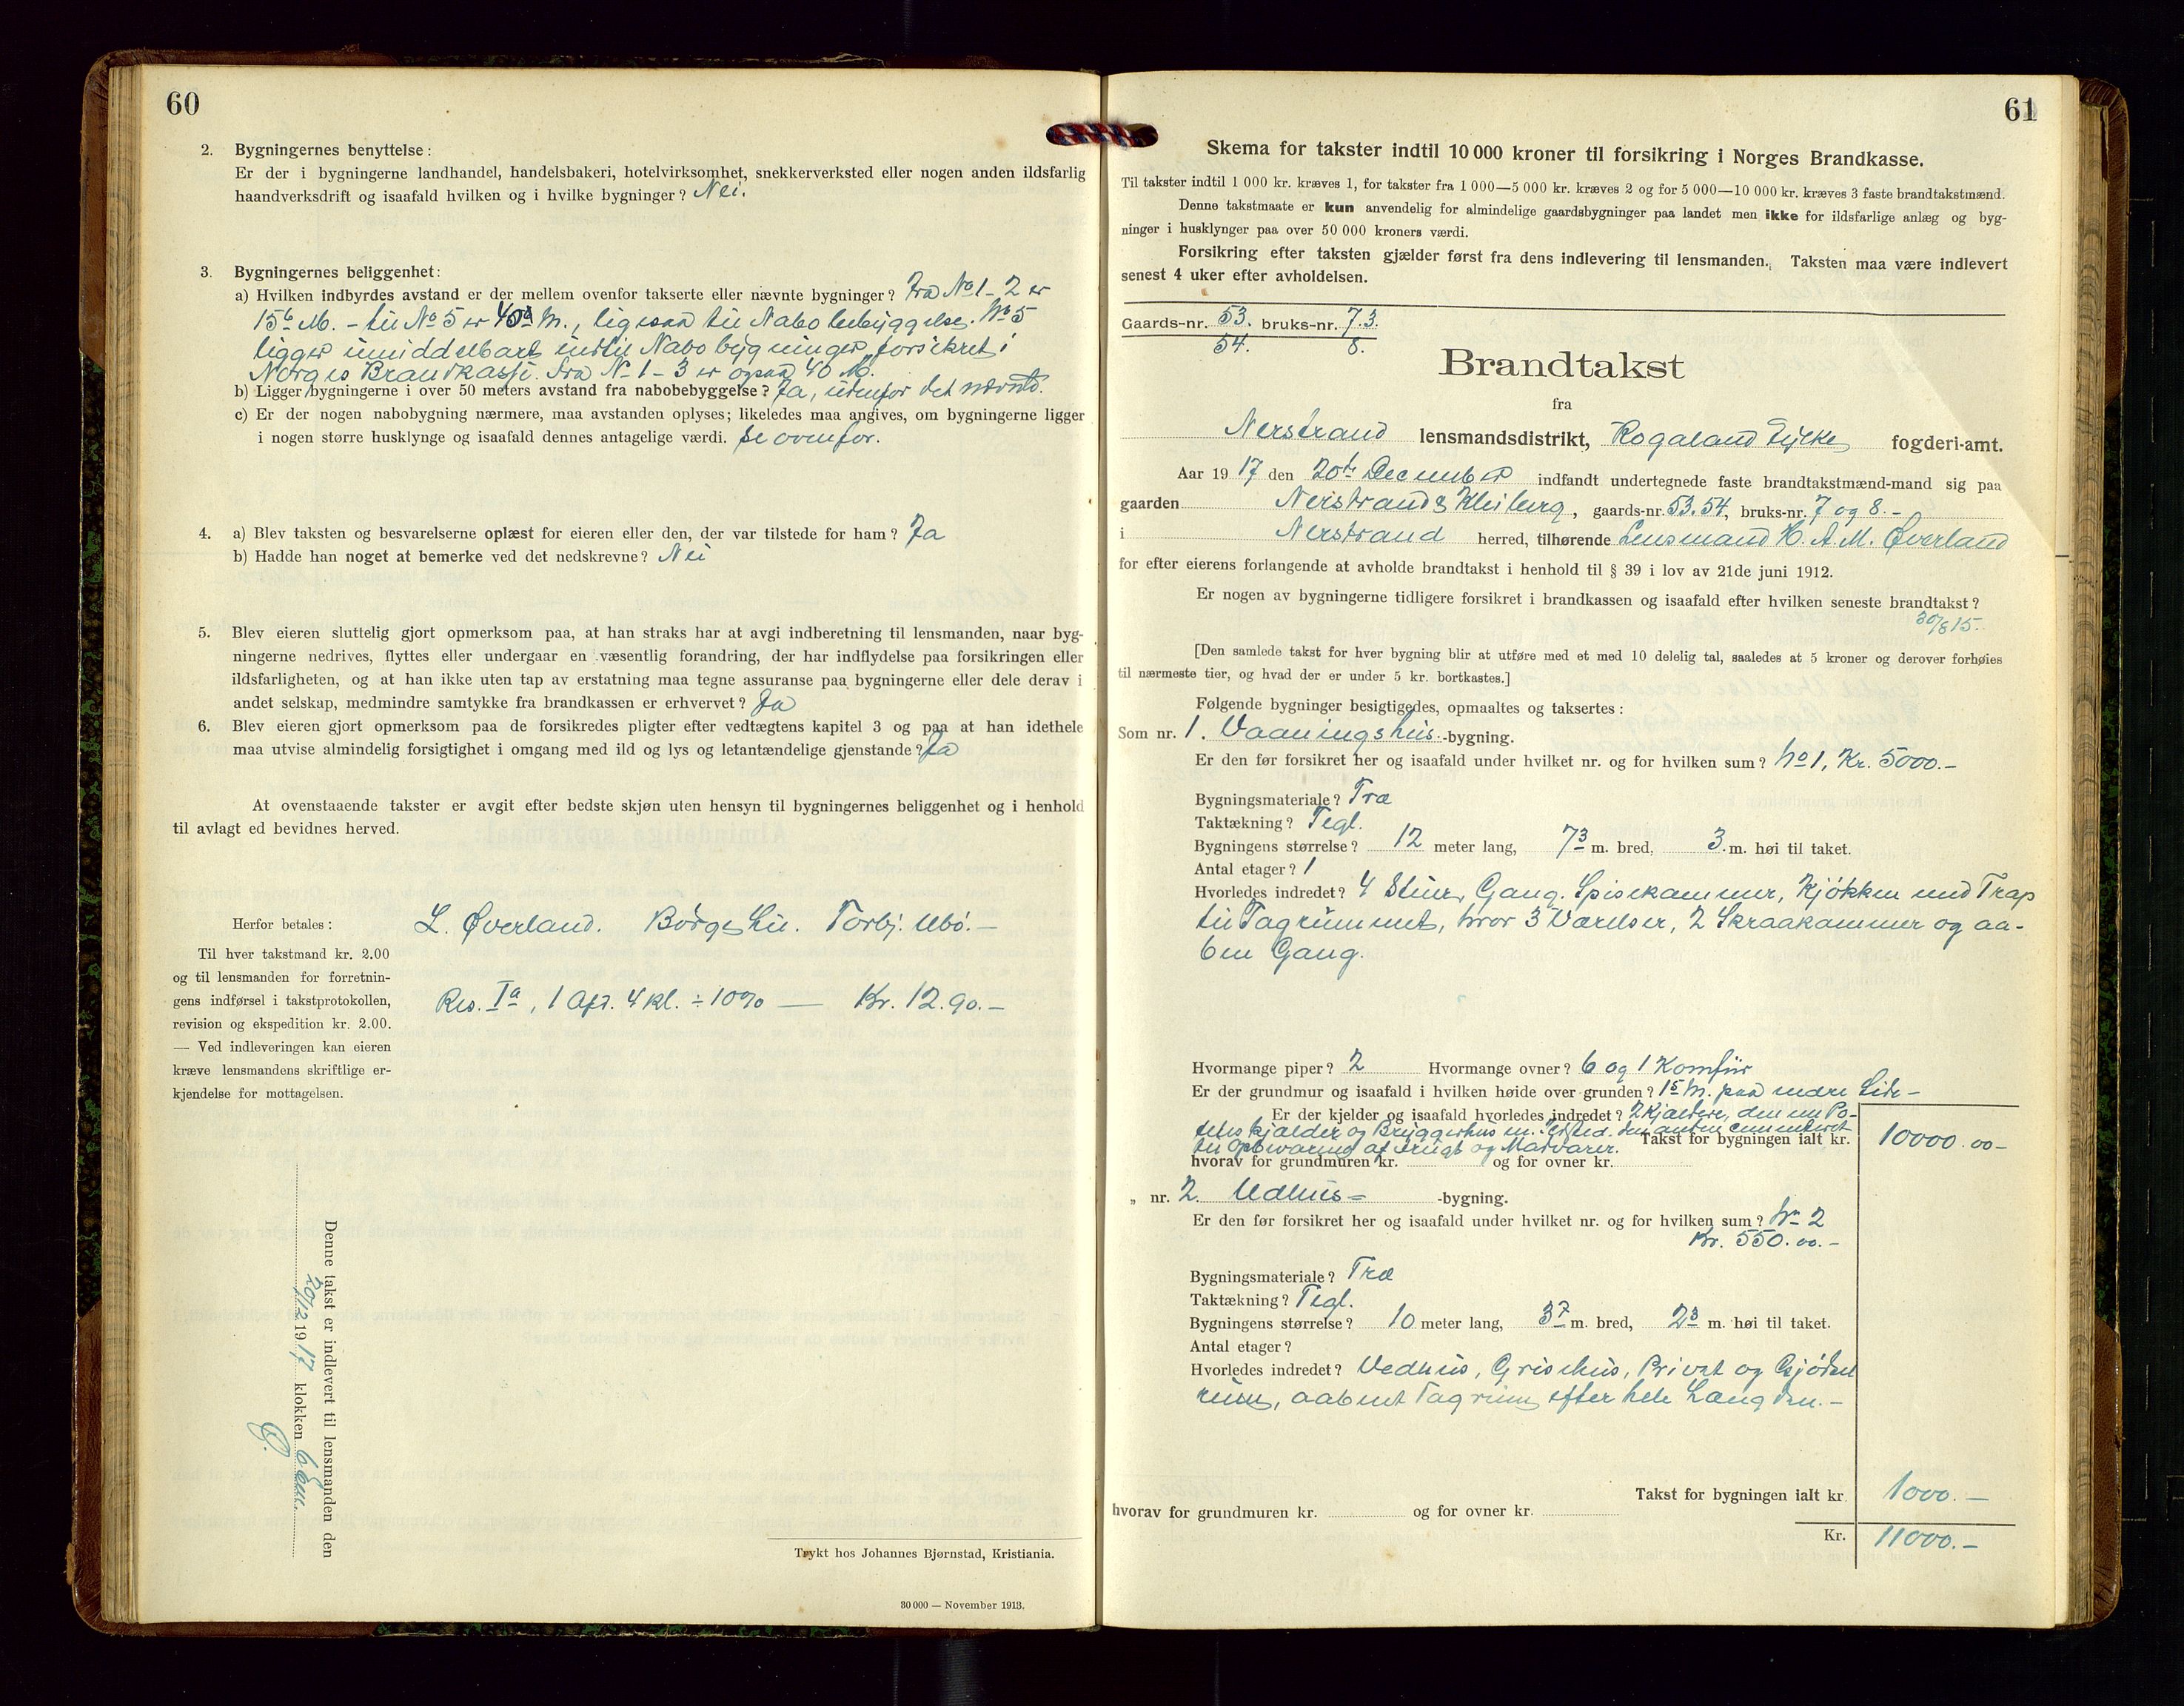 60
2. Bygningernes benyttelse:
Er der i bygningerne landhandel, handelsbakeri, hotelvirksomhet, snekkerverksted eller nogen anden ildsfarlig
haandverksdrift og isaafald hvilken og i hvilke bygninger? Nei.
3. Bygningernes beliggenhet:
a) Hvilken indbyrdes avstand er der mellem ovenfor takserte eller nævnte bygninger? Fra No 1 - 2 er
15 6 M. - til No 5 er M., ligesaa til Nabobebyggelse. No 5
ligger umiddelbart indtil Nabobygninger, forsikret i
Norges Brandkasse. Fra No 1 - 3 er ogsaa 40 M.
b) Ligger bygningerne i over 50 meters avstand fra nabobebyggelse? Ja, utenfor det nævnte.
c) Er der nogen nabobygning nærmere, maa avstanden oplyses; likeledes maa angives, om bygningerne ligger
i nogen større husklynge og isaafald dennes antagelige værdi. Se ovenfor.
4. a) Blev taksten og besvarelserne oplæst for eieren eller den, der var tilstede for ham? Ja
b) Hadde han noget at bemerke ved det nedskrevne? Nei
5. Blev eieren sluttelig gjort opmerksom paa, at han straks har at avgi indberetning til lensmanden, naar byg-
ningerne nedrives, flyttes eller undergaar en væsentlig forandring, der har indflydelse paa forsikringen eller
ildsfarligheten, og at han ikke uten tap av erstatning maa tegne assuranse paa bygningerne eller dele derav i
andet selskap, medmindre samtykke fra brandkassen er erhvervet? Ja
6. Blev eieren gjort opmerksom paa de forsikredes pligter efter vedtægtens kapitel 3 og paa at han idethele
maa utvise almindelig forsigtighet i omgang med ild og lys og letantændelige gjenstande? Ja
At ovenstaaende takster er avgit efter bedste skjøn uten hensyn til bygningernes beliggenhet og i henhold
til avlagt ed bevidnes herved.
Herfor betales: L. Øverland. Børge Lie. Torbj. Ubø. -
Til hver takstmand kr. 2.00
og til lensmanden for forretnin-
gens indførsel i takstprotokollen,
revision og ekspedition kr. 2.00.
— Ved indleveringen kan eieren
kræve lensmandens skriftlige er-
kjendelse for mottagelsen.
Res. Ia, 1 Afr. 4 kl. ÷ 10% — Kr. 12.90. -
Denne takst er indlevert til lensmanden den
20/12 1917 klokken 6 Em.
Trykt hos Johannes Bjørnstad, Kristiania.
30 000 — November 1913.
61
Skema for takster indtil 10 000 kroner til forsikring i Norges Brandkasse.
Til takster indtil 1 000 kr. kræves 1, for takster fra 1 000—5 000 kr. kræves 2 og for 5 000—10 000 kr. kræves 3 faste brandtakstmænd.
Denne takstmaate er kun anvendelig for almindelige gaardsbygninger paa landet men ikke for ildsfarlige anlæg og byg-
ninger i husklynger paa over 50 000 kroners værdi.
Forsikring efter taksten gjælder først fra dens indlevering til lensmanden. Taksten maa være indlevert
senest 4 uker efter avholdelsen.
Gaards-nr. 53. bruks-nr. 7.3.
54. 8.
Brandtakst
fra
Nerstrand lensmandsdistrikt, Rogaland Fylke fogderi-amt.
Aar 1917 den 20de December indfandt undertegnede faste brandtakstmænd-mand sig paa
gaarden Neistrand & Kleiberg, gaards-nr. 53.54, bruks-nr. 7 og 8. -
i Nerstrand herred, tilhørende Lensmand H. A. M. Øverland
for efter eierens forlangende at avholde brandtakst i henhold til § 39 i lov av 21de juni 1912.
Er nogen av bygningerne tidligere forsikret i brandkassen og isaafald efter hvilken seneste brandtakst?
30/8 15.
[Den samlede takst for hver bygning blir at utføre med et med 10 delelig tal, saaledes at 5 kroner og derover forhøies
til nærmeste tier, og hvad der er under 5 kr. bortkastes.]
Følgende bygninger besigtigedes, opmaaltes og taksertes:
Som nr. 1. Vaaningshus-bygning.
Er den før forsikret her og isaafald under hvilket nr. og for hvilken sum? No 1, Kr. 5000. -
Bygningsmateriale? Træ
Taktækning? Tegl.
Bygningens størrelse? 12 meter lang, 7 3 m. bred, 3 m. høi til taket.
Antal etager? 1
Hvorledes indredet? 4 Stuer, Gang. Spisekammer, Kjøkken med Trap
til Tagrummet, hvor 3 Værelser, 2 Skraakammer og aa-
ben Gang.
Hvormange piper? 2 Hvormange ovner? 6 og 1 Komfür
Er der grundmur og isaafald i hvilken høide over grunden? 1 5 M. paa nedre Side -
Er der kjelder og isaafald hvorledes indredet? 2 Kjældere, den en Po-
teteskjælder og Bryggerhus m. Ildsted. den anden cementeret
til Opbevaring af Frugt og Madvarer. Takst for bygningen ialt kr. 10000.00 -
hvorav for grundmuren kr. og for ovner kr.
„ nr. 2. Udhus-bygning.
Er den før forsikret her og isaafald under hvilket nr. og for hvilken sum? No 2
Kr. 550.00. -
Bygningsmateriale? Træ
Taktækning? Tegl.
Bygningens størrelse? 10 meter lang, 3 7 m. bred, 2 3 m. høi til taket.
Antal etager?
Hvorledes indredet? Vedhus, Grisehus, Privet og Gjødsel
rum, aabent Tagrum efter hele Længden. -
Takst for bygningen ialt kr. 1000. -
hvorav for grundmuren kr. og for ovner kr.
Kr. 11000. -